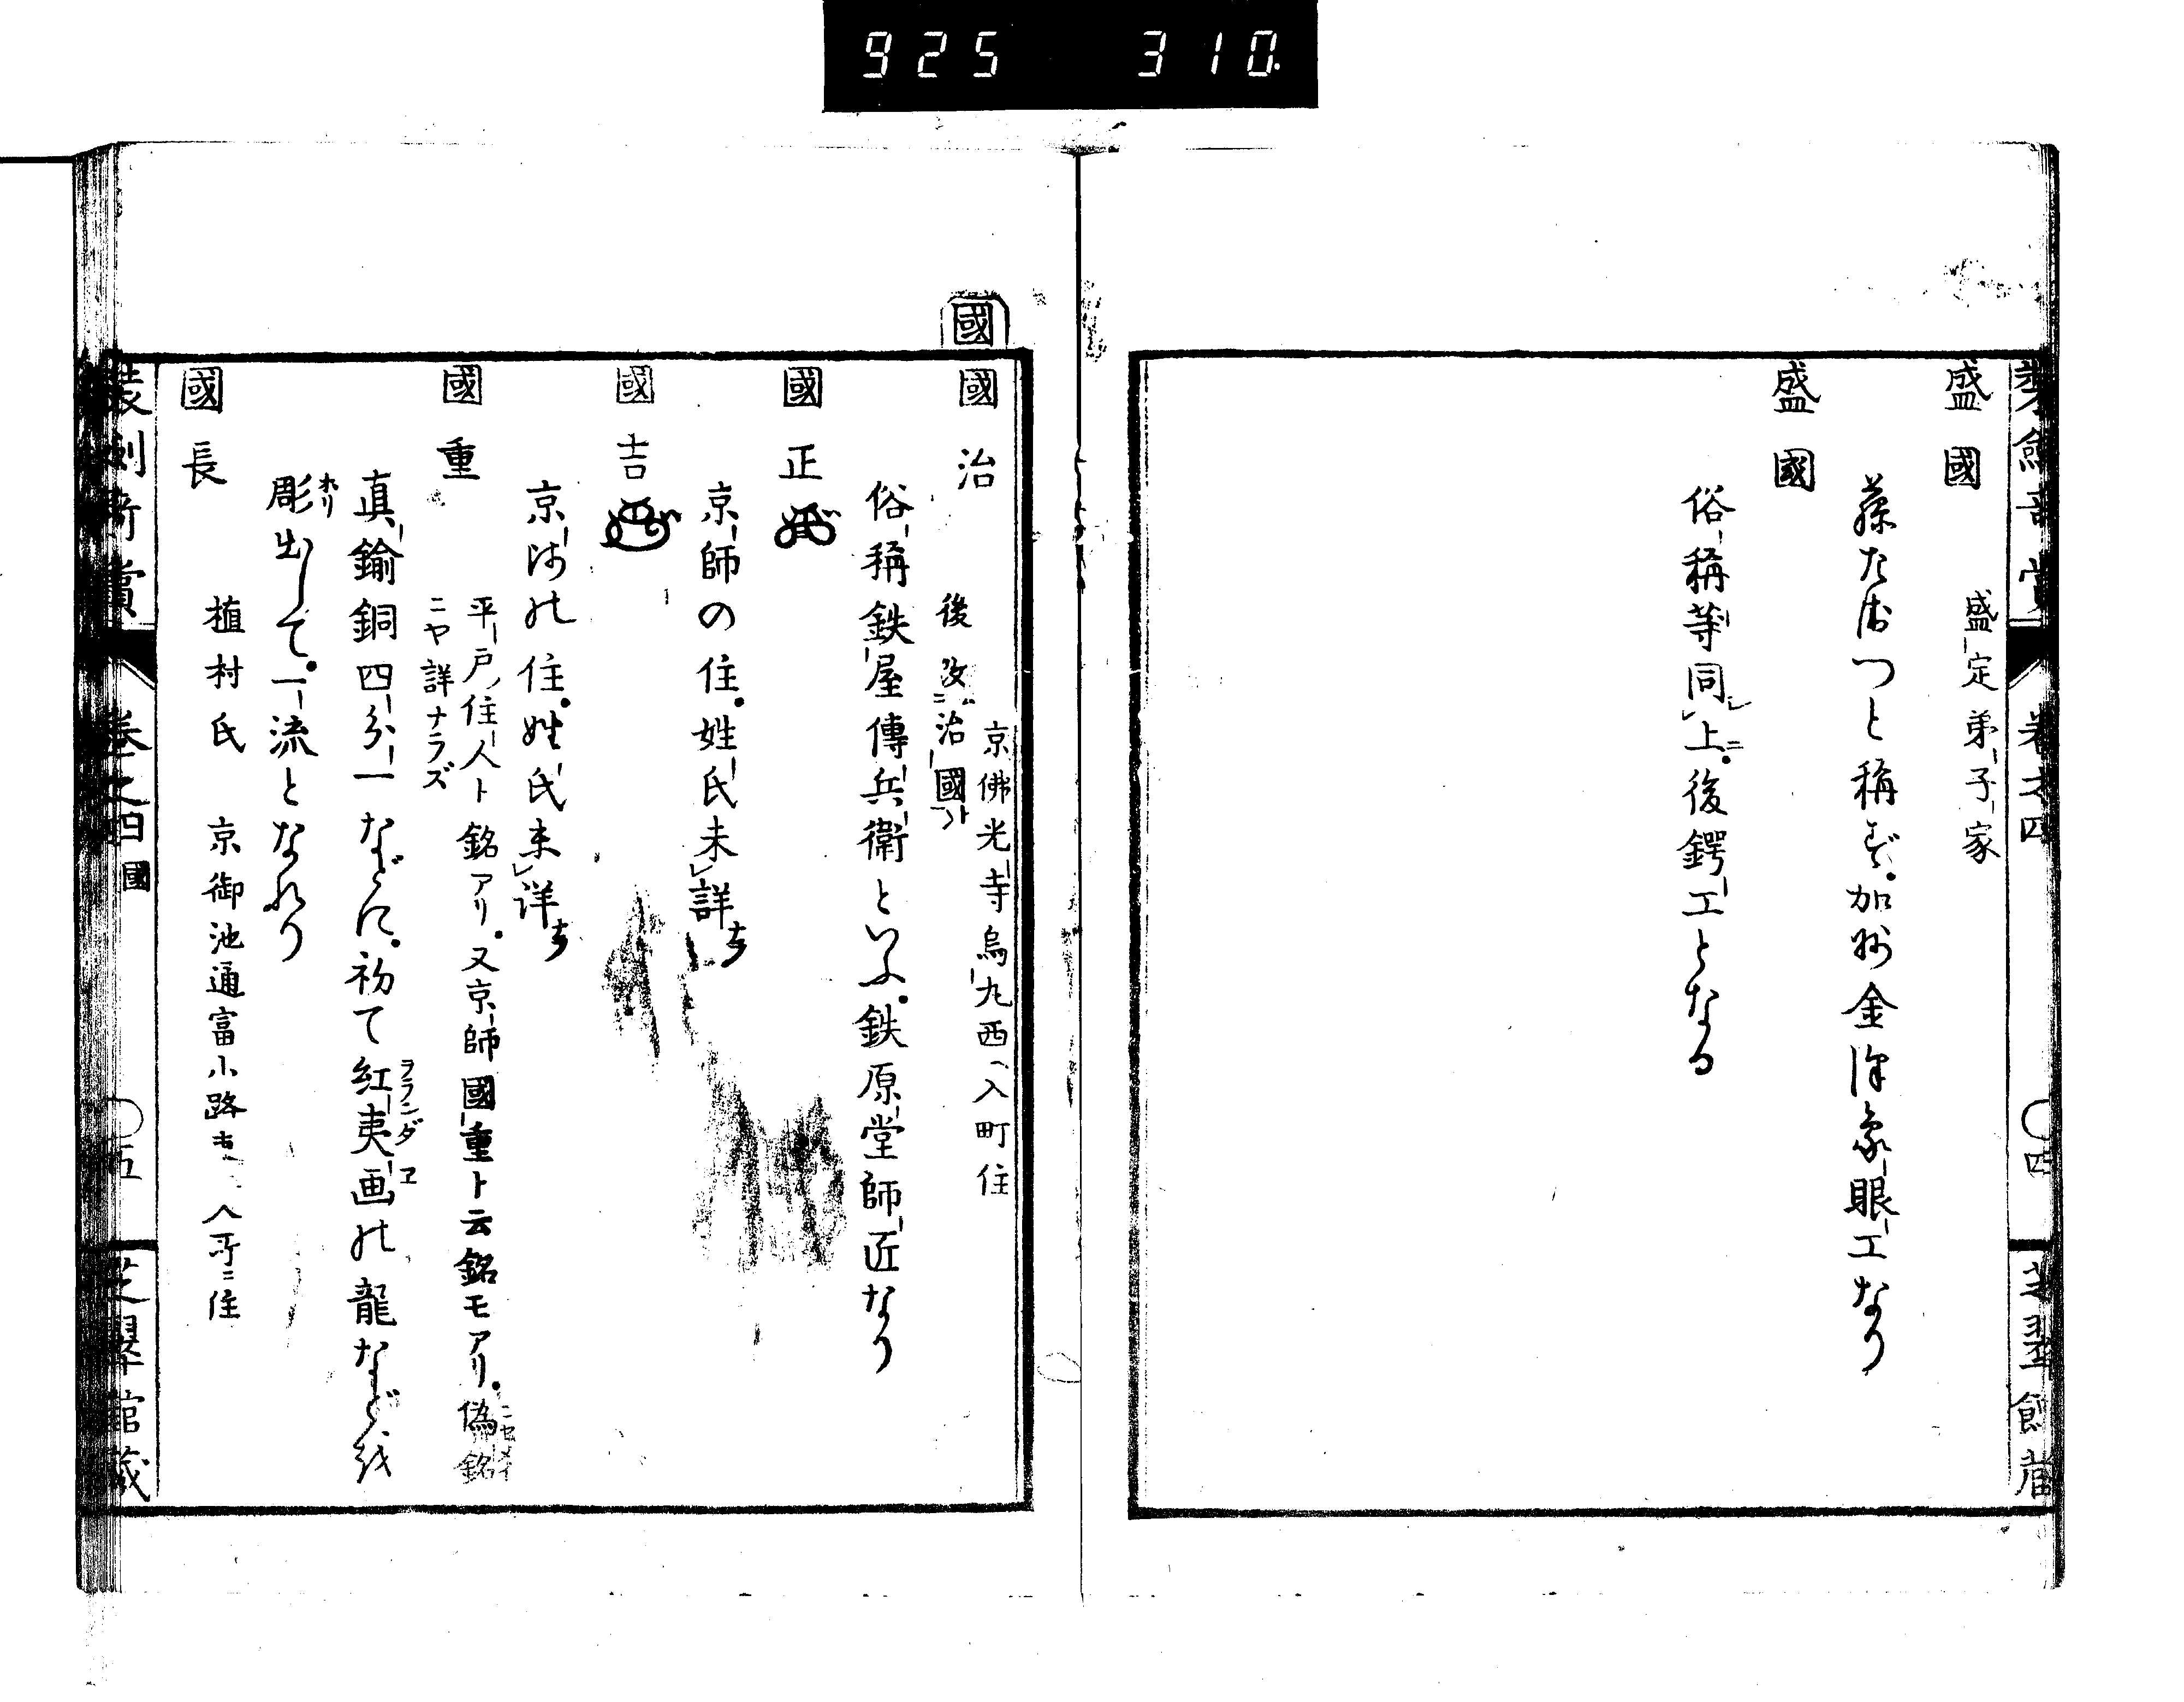 925 310
盛國
盛定弟子家
藤たばつと稱ず。加州金澤象眼工なり
盛國
俗稱等同上ニ。後鍔工となる
卷之四
國
國治
京佛光寺烏丸西ヘ入町住
後改ニ治國ト
俗稱鉄屋傳兵衛といふ。鉄原堂師匠なり
國正
京師の住。姓氏未詳
國吉
京師の住。姓氏未詳
國重
平戸住人ト銘アリ。又京師國重ト云銘モアリ。偽銘
ニセメイ
ニヤ詳ナラズ
真鍮銅四分一などに。初て紅夷画の龍などを
ヲランダヱ
彫出して。一流となれり
ホリ
國長
植村氏 京御池通富小路 入所ニ住
裝劍奇賞 卷之四 國 五 芝翠館藏